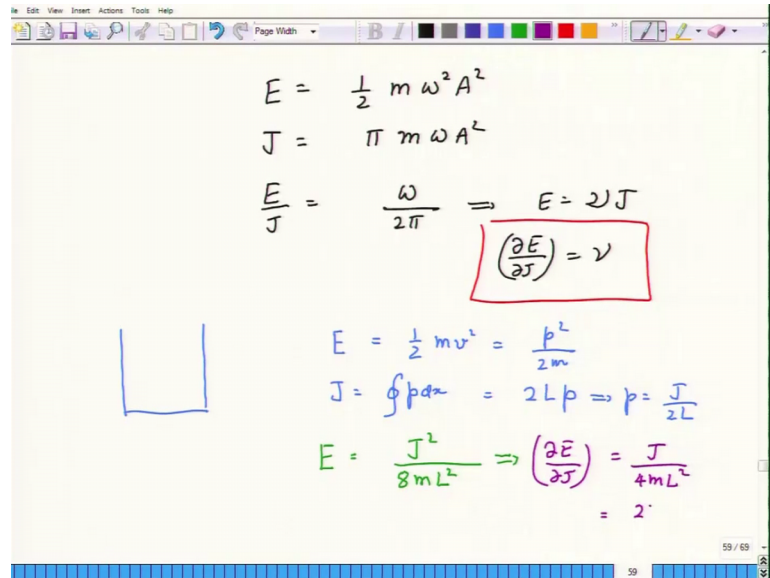 File Edit View Insert Actions Tools Help
Page Width
B I
E = 1/2 m ω² A²
J = π m ω A²
E/J = ω/2π ⇒ E = νJ
(∂E/∂J) = ν
E = 1/2 mv² = p²/2m
J = ∮pdx = 2Lp ⇒ p = J/2L
E = J²/8mL² ⇒ (∂E/∂J) = J/4mL²
= 2
59 / 69
59